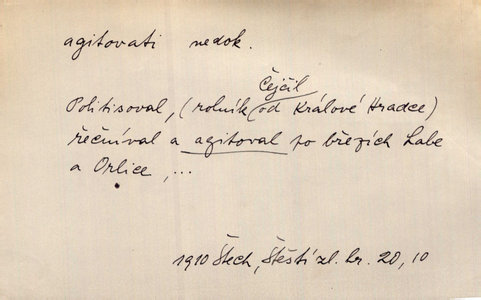 agitovati nedok.
Čejčil
Politisoval, (rolník od Králové Hradce)
řečníval a agitoval po březích Labe
a Orlice, ...
1910 Štech, Štěstí zl. hr. 20, 10